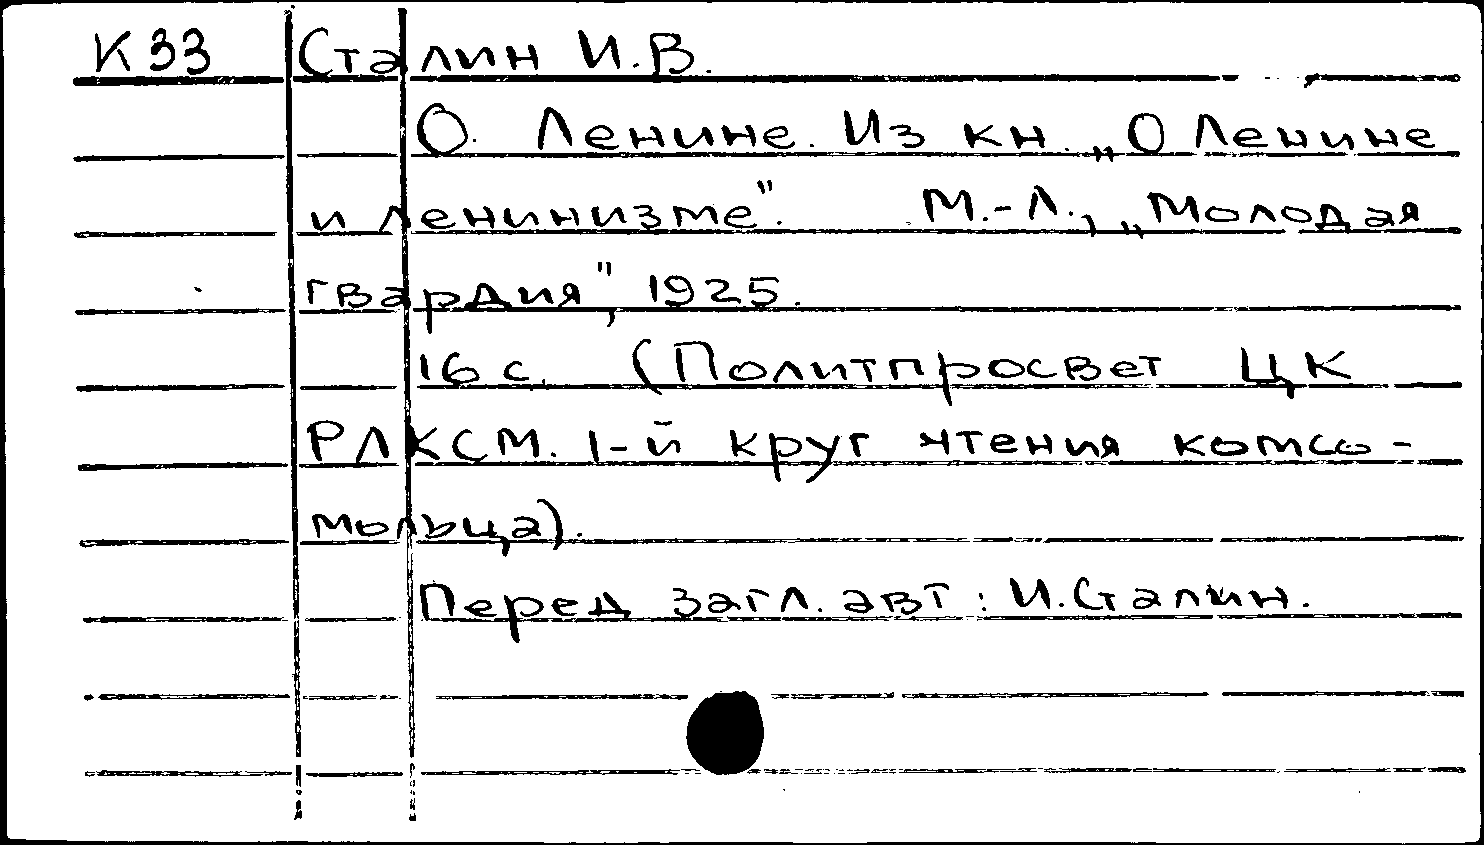 К 33 Сталин И.В.
О. Ленине. Из кн. „О Ленине
и ленинизме". М.-Л., „Молодая
гвардия", 1925.
16 с. (Политпросвет ЦК
РЛКСМ. 1-й круг чтения комсо-
мольца).
Перед загл. авт: И.Сталин.